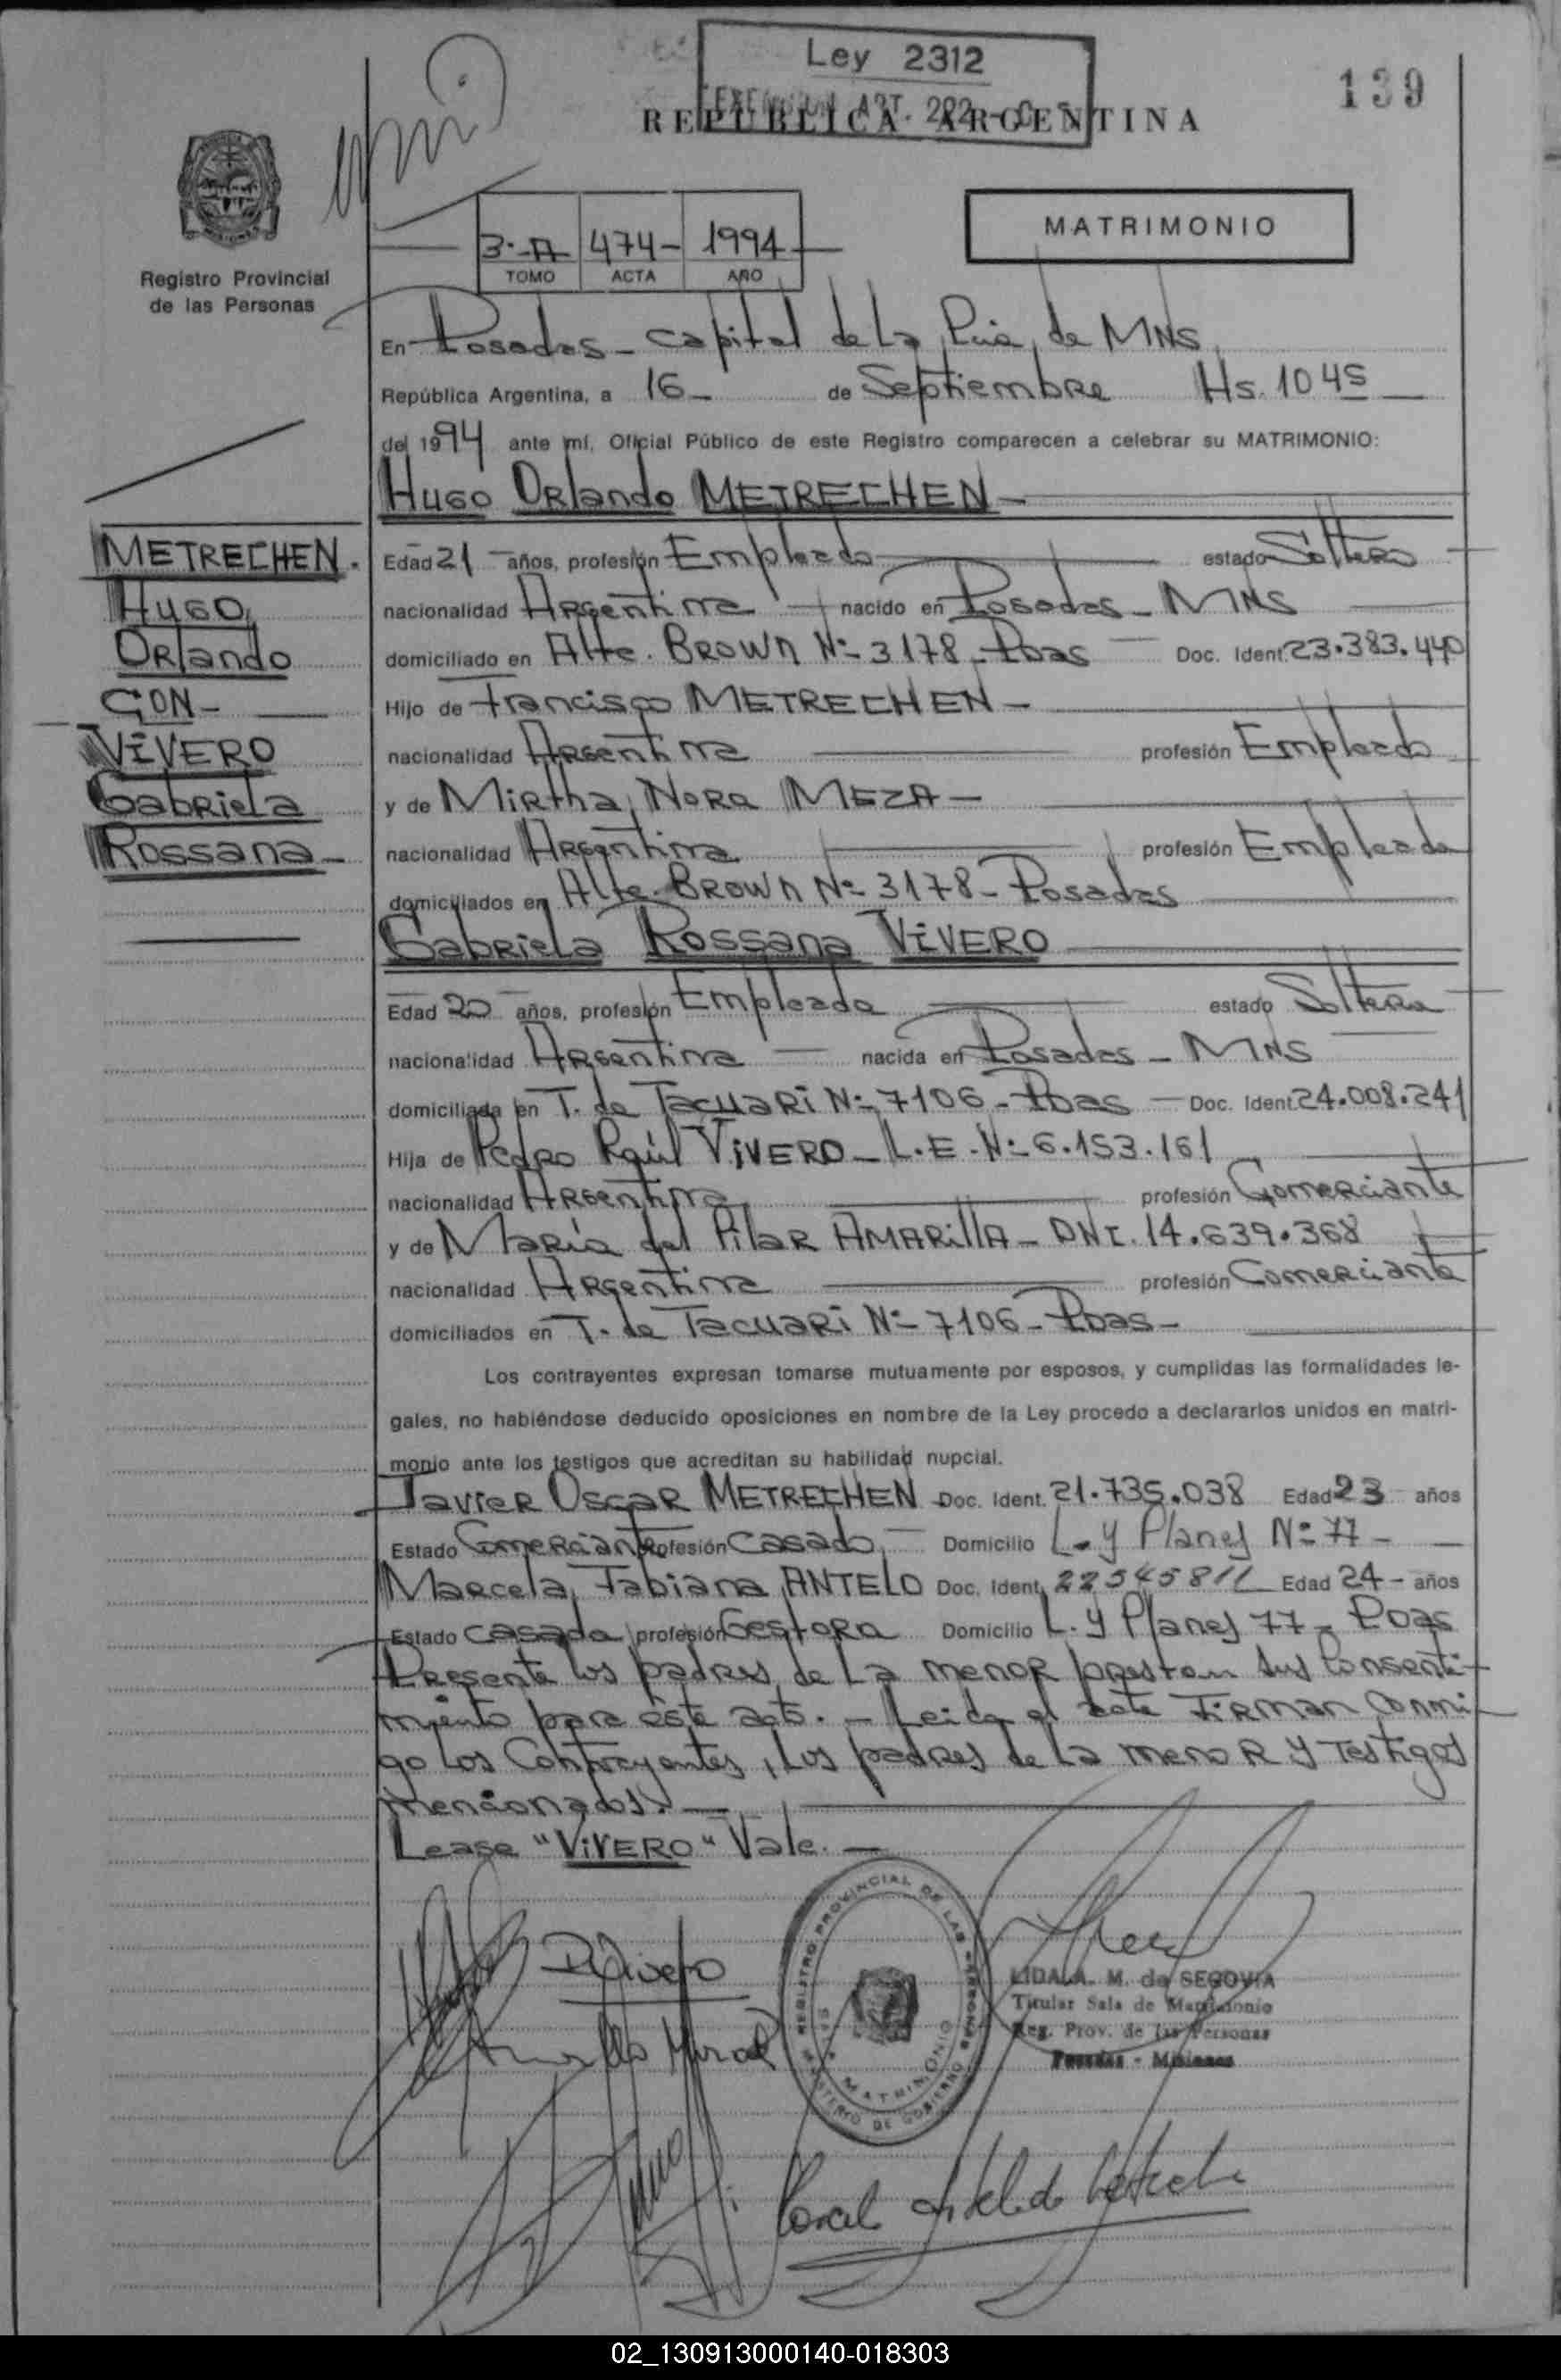 Ley 2312
EXENCION ART. 292
139
REPUBLICA ARGENTINA
3·-A 474- 1994
TOMO ACTA AÑO
MATRIMONIO
Registro Provincial
de las Personas
En Posadas - capital de La Pcia, de MNS,
República Argentina, a 16- de Septiembre Hs. 10 45
del 1994 ante mí, Oficial Público de este Registro comparecen a celebrar su MATRIMONIO:
Hugo Orlando METRECHEN -
METRECHEN.
Hugo,
Orlando
CON -
VIVERO
Gabriela
Rossana -
Edad 21 años, profesión Empleado estado Soltero
nacionalidad Argentina nacido en Posadas - MNS
domiciliado en Alte. BROWN Nº 3178 - Pdas Doc. Ident. 23.383.440
Hijo de Francisco METRECHEN -
nacionalidad Argentina profesión Empleado
y de Mirtha Nora MEZA -
nacionalidad Argentina profesión Empleada
domiciliados en Alte. BROWN Nº 3178 - Posadas
Gabriela Rossana VIVERO
Edad 20 años, profesión Empleada estado Soltera
nacionalidad Argentina nacida en Posadas - MNS
domiciliada en T. de Tacuari Nº 7106 - Pdas - Doc. Ident. 24.008.241
Hija de Pedro Raúl VIVERO - L.E. Nº 6.153.161
nacionalidad Argentina profesión Comerciante
y de María del Pilar AMARillA - DNI. 14.639.368
nacionalidad Argentina profesión Comerciante
domiciliados en T. de Tacuari Nº 7106 - Pdas -
Los contrayentes expresan tomarse mutuamente por esposos, y cumplidas las formalidades le-
gales, no habiéndose deducido oposiciones en nombre de la Ley procedo a declararlos unidos en matri-
monio ante los testigos que acreditan su habilidad nupcial.
Javier Oscar METRECHEN Doc. Ident. 21.735.038 Edad 23 años
Estado Comerciante profesión Casado - Domicilio L. y Planes Nº 77 -
Marcela Fabiana ANTELO Doc. Ident. 22545811 Edad 24 - años
Estado casada profesión Gestora Domicilio L. y Planes 77 - Pdas
Presente los padres de La menor prestan sus Consenti-
miento para éste acto. - Leida el acta Firman Conmi-
go Los Contrayentes, Los padres de La menor y Testigos
mencionados. -
Lease "VIVERO" Vale. -
REGISTRO PROVINCIAL DE LAS PERSONAS
MATRIMONIO
MINISTERIO DE GOBIERNO
LIDA A. M. de SEGOVIA
Titular Sala de Matrimonio
Reg. Prov. de las Personas
Posadas - Misiones
02_130913000140-018303